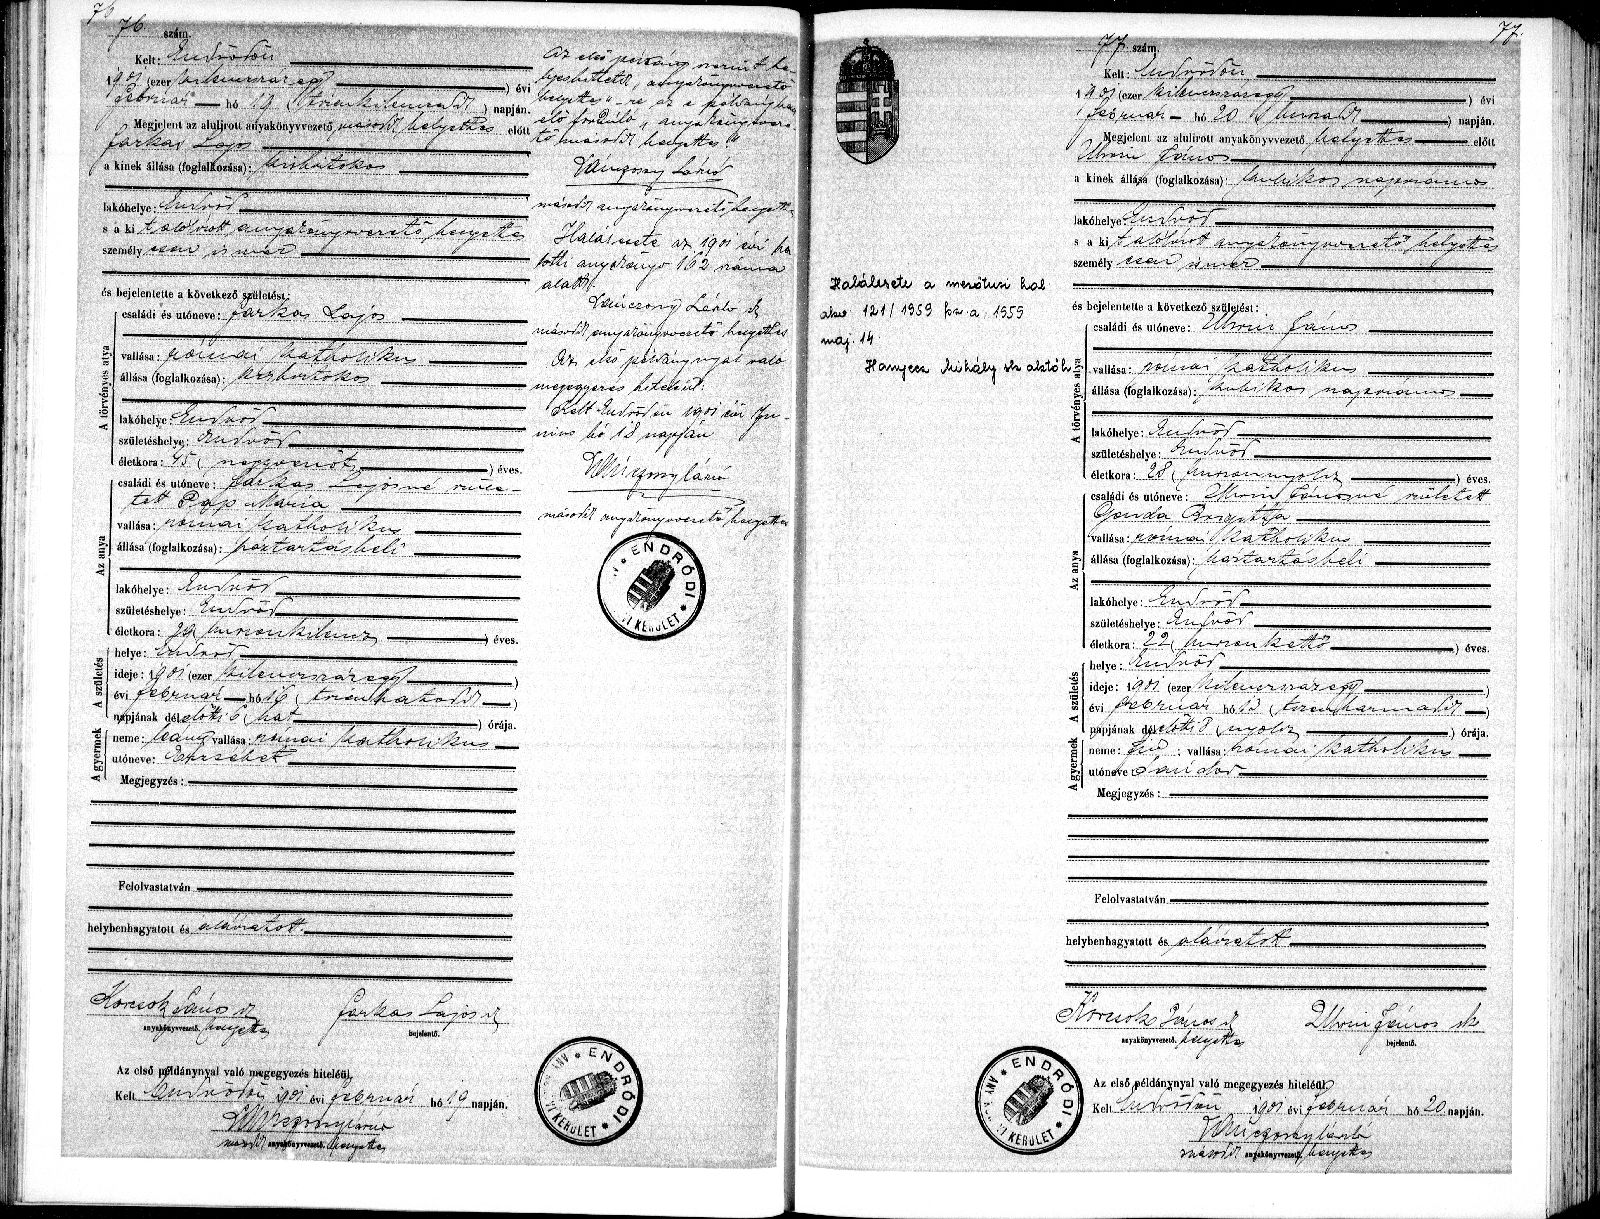 76
76 szám.
Kelt: Endrődön
1901 (ezer kilencszáz egy ) évi
február hó 19 (tizenkilenczedik) napján.
Megjelent az alulirott anyakönyvvezető másod helyettes előtt
Farkas Lajos
a kinek állása (foglalkozása): kisbirtokos
lakóhelye: Endrőd
s a kit alólirott anyakönyvvezető helyettes
személyesen ismer
és bejelentette a következő születést:
A törvényes atya
családi és utóneve: Farkas Lajos
vallása: római katholikus
állása (foglalkozása): kisbirtokos
lakóhelye: Endrőd
születéshelye: Endrőd
életkora: 45 (negyvenöt ) éves.
Az anya
családi és utóneve: Farkas Lajosné szüle-
tett Pap Mária
vallása: római katholikus
állása (foglalkozása): háztartásbeli
lakóhelye: Endrőd
születéshelye: Endrőd
életkora: 29 (huszonkilencz ) éves.
A születés
helye: Endrőd
ideje: 1901 (ezer kilencszázegy )
évi február hó 16 (tizenhatodik )
napjának délelőtti 6 (hat ) órája.
A gyermek
neme: leány vallása: római katholikus
utóneve: Erzsébet
Megjegyzés:
Felolvastatván
helybenhagyatott és aláiratott.
Korcsok János sk
anyakönyvvezető helyettes
Farkas Lajos sk
bejelentő.
Az első példánynyal való megegyezés hiteléül.
Kelt Endrődön 1901 évi február hó 19 napján.
László
másod anyakönyvvezető helyettes
Az első példány szerint he-
lyesbittetik, anyakönyvvezető
helyettes"-re az e példányban
elő forduló „anyakönyvveze-
tő másod helyettes"
László
másod anyakönyvvezető helyettes
Halálesete az 1901 évi ha-
lotti anyakönyv 162 száma
alatt.
László sk
másod anyakönyvvezető helyettes
Az első példánynyal való
megegyezés hiteléül.
Kelt Endrődön 1901 évi Ju-
nius hó 18 napján
László
másod anyakönyvvezető helyettes
ENDRŐDI
KERÜLET
ENDRŐDI
ANY
KERÜLET
77.
77 szám.
Kelt: Endrődön
1901 (ezer kilencszázegy ) évi
február hó 20 (huszadik ) napján.
Megjelent az alulirott anyakönyvvezető helyettes előtt
János
a kinek állása (foglalkozása): kubikos napszámos
lakóhelye: Endrőd
s a kit alólirott anyakönyvvezető helyettes
személyesen ismer
és bejelentette a következő születést:
A törvényes atya
családi és utóneve: János
vallása: római katholikus
állása (foglalkozása): kubikos napszámos
lakóhelye: Endrőd
születéshelye: Endrőd
életkora: 28 (huszonnyolcz ) éves.
Az anya
családi és utóneve: Jánosné született
Gonda Brigitta
vallása: római katholikus
állása (foglalkozása): háztartásbeli
lakóhelye: Endrőd
születéshelye: Endrőd
életkora: 22 (huszonkettő ) éves.
A születés
helye: Endrőd
ideje: 1901 (ezer kilencszázegy )
évi február hó 13 (tizenharmadik )
napjának délelőtti 8 (nyolcz ) órája.
A gyermek
neme: fiú; vallása: római katholikus
utóneve Sándor
Megjegyzés:
Felolvastatván
helybenhagyatott és aláiratott
Korcsok János sk
anyakönyvvezető helyettes
János sk
bejelentő.
Az első példánynyal való megegyezés hiteléül.
Kelt Endrődön 1901 évi február hó 20 napján.
László
másod anyakönyvvezető helyettes
Halálesete a mezőturi hal
akv 121/1959 fsz. a. 1959
máj. 14
Hanyecz Mihály sk aktól
ENDRŐDI
ANY
KERÜLET